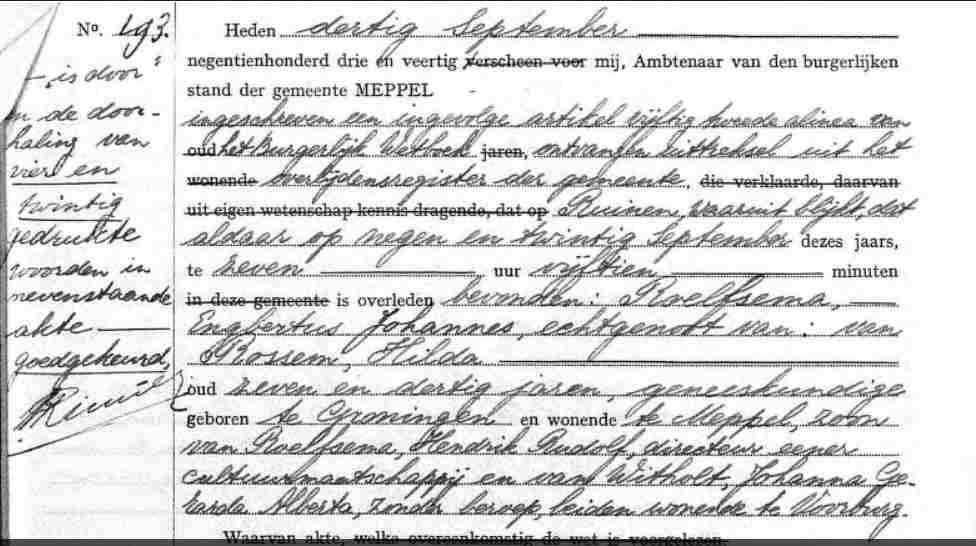 No. 193.
„is door"
in de door-
haling van
vier en
twintig
gedrukte
woorden in
nevenstaande
akte
goedgekeurd,
Heden dertig September
negentienhonderd drie en veertig verscheen voor mij, Ambtenaar van den burgerlijken
stand der gemeente MEPPEL -
ingeschreven een ingevolge artikel vijftig tweede alinea van
oud het Burgerlijk Wetboek jaren, ontvangen uittreksel uit het
wonende overlijdensregister der gemeente, die verklaarde, daarvan
uit eigen wetenschap kennis dragende, dat op Ruinen, waaruit blijkt, dat
aldaar op negen en twintig September dezes jaars,
te zeven uur vijftien minuten
in deze gemeente is overleden bevonden: Roelfsema,
Engbertus Johannes, echtgenoot van: van
Rossem, Hilda
oud zeven en dertig jaren, geneeskundige
geboren te Groningen en wonende te Meppel, zoon
van Roelfsema, Hendrik Rudolf, directeur eener
cultuurmaatschappij en van Witholt, Johanna Ge-
rarda Alberta, zonder beroep, beiden wonende te Voorburg.
Waarvan akte, welke overeenkomstig de wet is voorgelezen.